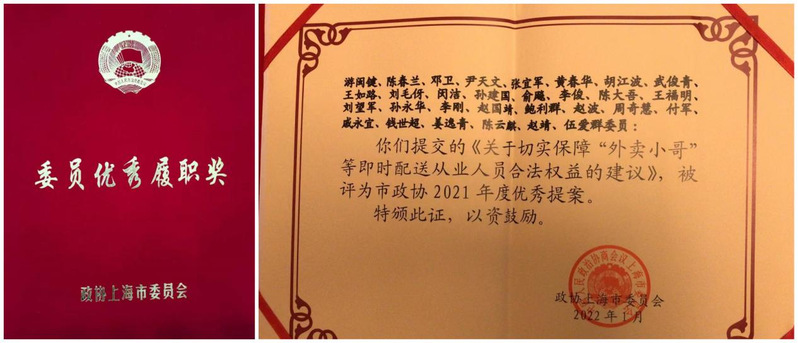 委员优秀履职奖
政协上海市委员会
游闽健、陈春兰、邓卫、尹天文、张宜军、黄春华、胡江波、武俊青、
王如路、刘毛伢、闵洁、孙建国、俞飚、李俊、陈大吾、王福明、
刘望军、孙永华、李刚、赵国靖、鲍利群、赵波、周奇慧、付军、
戚永宜、钱世超、姜逸青、陈云麒、赵靖、伍爱群委员：
你们提交的《关于切实保障“外卖小哥”
等即时配送从业人员合法权益的建议》，被
评为市政协2021年度优秀提案。
特颁此证，以资鼓励。
政协上海市委员会
2022年1月